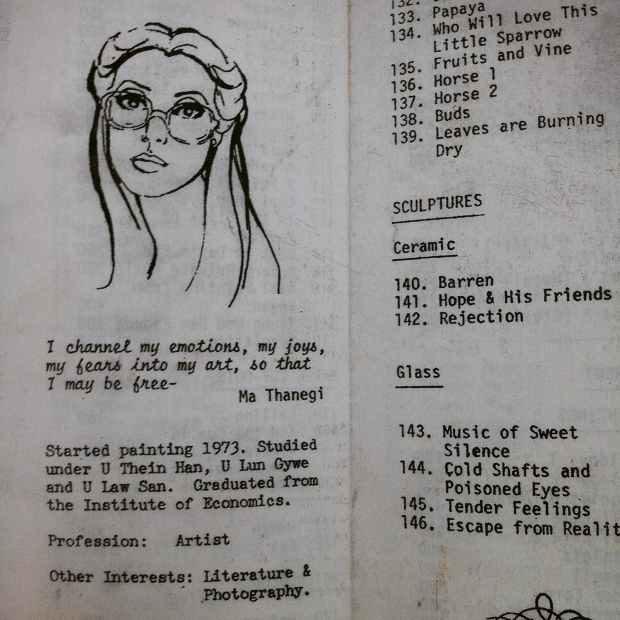 I channel my emotions, my joys,
my fears into my art, so that
I may be free-
Ma Thanegi
Started painting 1973. Studied
under U Thein Han, U Lun Gywe
and U Law San. Graduated from
the Institute of Economics.
Profession: Artist
Other Interests: Literature &
Photography.
132.
133. Papaya
134. Who Will Love This
Little Sparrow
135. Fruits and Vine
136. Horse 1
137. Horse 2
138. Buds
139. Leaves are Burning
Dry
SCULPTURES
Ceramic
140. Barren
141. Hope & His Friends
142. Rejection
Glass
143. Music of Sweet
Silence
144. Cold Shafts and
Poisoned Eyes
145. Tender Feelings
146. Escape from Realit